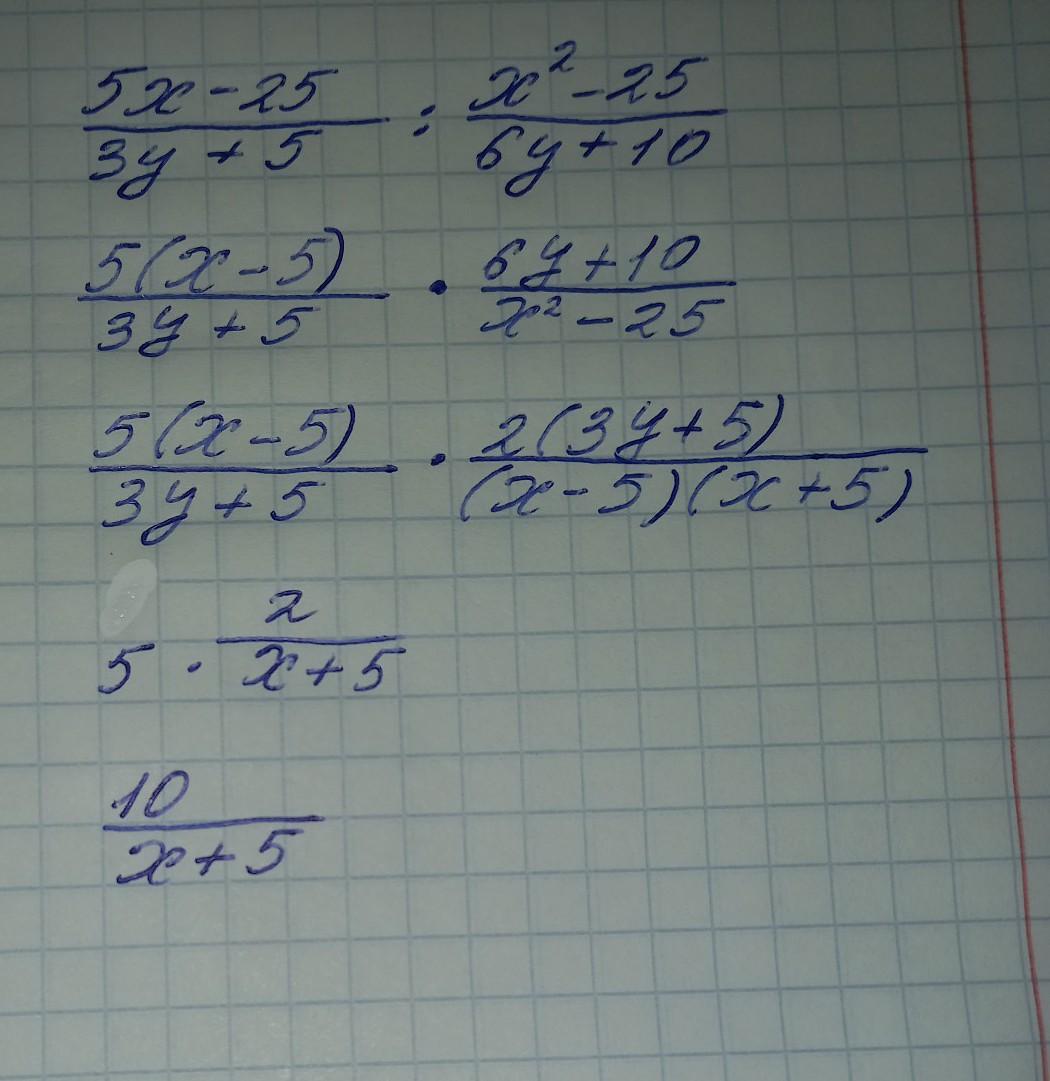 5x-25/3y+5 : x²-25/6y+10
5(x-5)/3y+5 · 6y+10/x²-25
5(x-5)/3y+5 · 2(3y+5)/(x-5)(x+5)
5 · 2/x+5
10/x+5